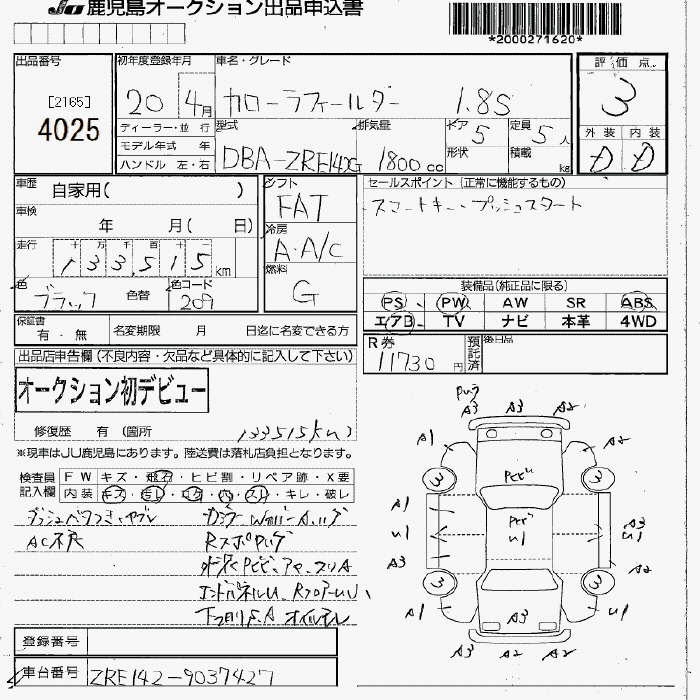 JU 鹿児島オークション出品申込書
*2000271620*
出品番号
[2165]
4025
初年度登録年月
20 4月
車名・グレード
カローラフィールダー 1.8S
評価点
3
外装 内装
D D
ディーラー・並行
モデル年式 年
ハンドル 左・右
型式
DBA-ZRE142G
排気量
1800 cc
ドア 5
形状
定員 5 人
積載 kg
車歴
自家用( )
車検
年 月( 日)
走行
十 万 千 百 十
133,515 km
色
ブラック 色替
色コード
209
シフト
FAT
冷房
A・A/C
燃料
G
セールスポイント (正常に機能するもの)
スマートキー・プッシュスタート
装備品(純正品に限る)
PS PW AW SR ABS
エアB TV ナビ 本革 4WD
保証書
有・無
名変期限 月 日迄に名変できる方
R券
11730 円
預託済
後日品
出品店申告欄(不良内容・欠品など具体的に記入して下さい)
オークション初デビュー
修復歴 有(箇所
133515km)
※現車はJU鹿児島にあります。陸送費は落札店負担となります。
検査員記入欄
FW キズ・飛石・ヒビ割・リペア跡・X要
内装 キズ・ヨレ・コゲ・穴・スレ・キレ・破レ
ダッシュベタつき・ヤブレ
AC不良
エンドパネルU
下回りS.A オイルモレ
A3 A3 A2
A1 A2
3 3
A1
U1 U1 A3 U1
A3 A2
3 3
A1 A3 U1
A3 A2 A2
登録番号
車台番号 ZRE142-9037427